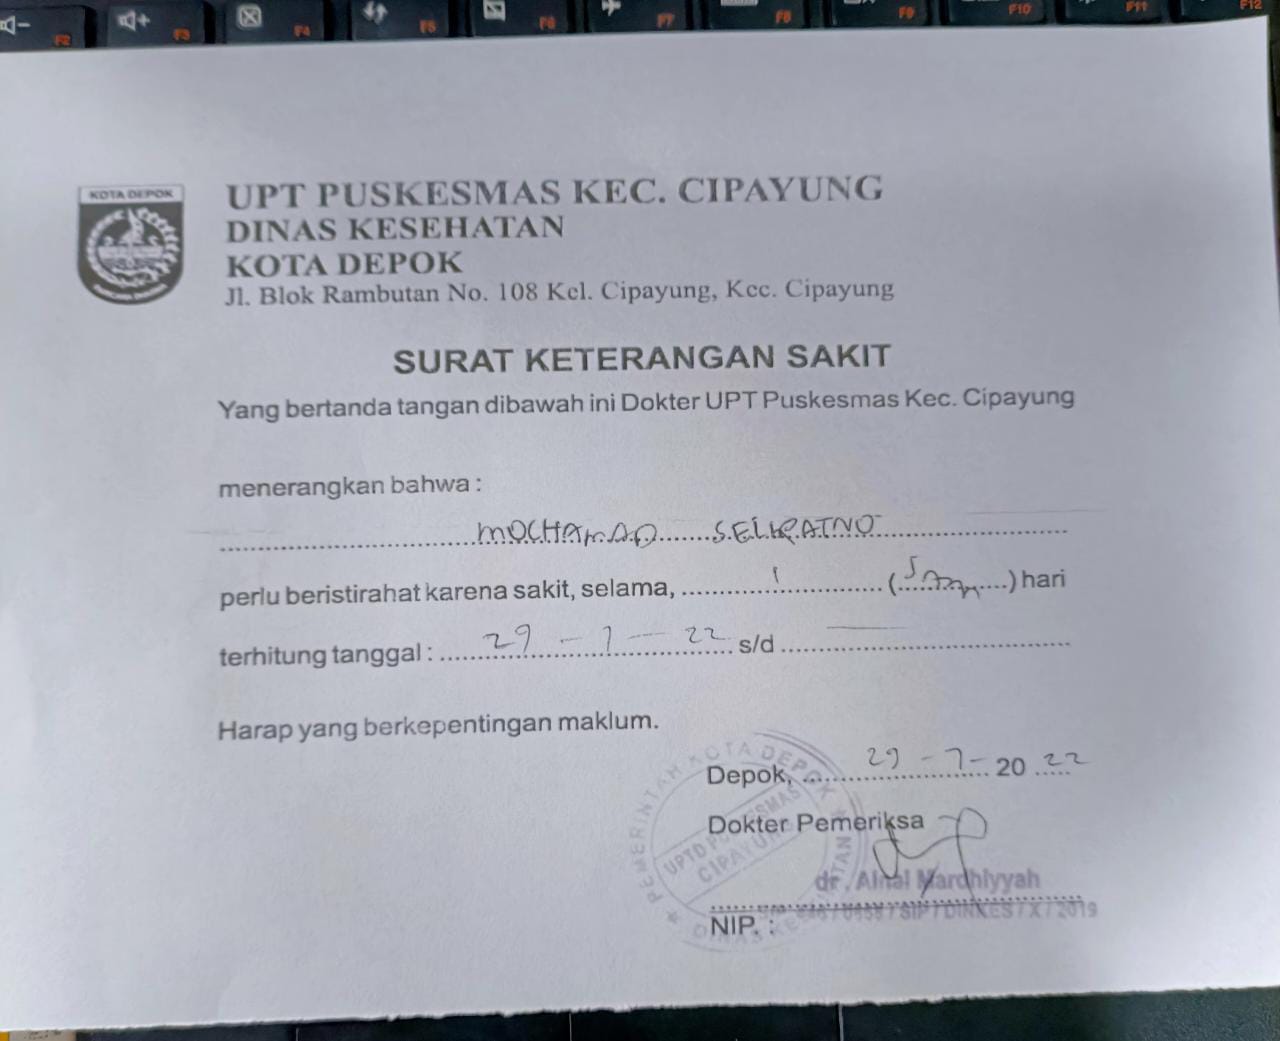 F2 F3 F4 F5 F6 F7 F8 F9 F10 F11 F12
KOTA DEPOK
UPT PUSKESMAS KEC. CIPAYUNG
DINAS KESEHATAN
KOTA DEPOK
Jl. Blok Rambutan No. 108 Kel. Cipayung, Kec. Cipayung
SURAT KETERANGAN SAKIT
Yang bertanda tangan dibawah ini Dokter UPT Puskesmas Kec. Cipayung
menerangkan bahwa :
MOCHAMAD
perlu beristirahat karena sakit, selama, 1 (Satu) hari
terhitung tanggal : 29 - 7 - 22 s/d —
Harap yang berkepentingan maklum.
Depok, 29 - 7 - 20 22
Dokter Pemeriksa
dr. Ainal Mardhiyyah
NIP. : / SIP / DINKES / X / 2019
PEMERINTAH KOTA DEPOK
UPTD PUSKESMAS
CIPAYUNG
DINAS KESEHATAN